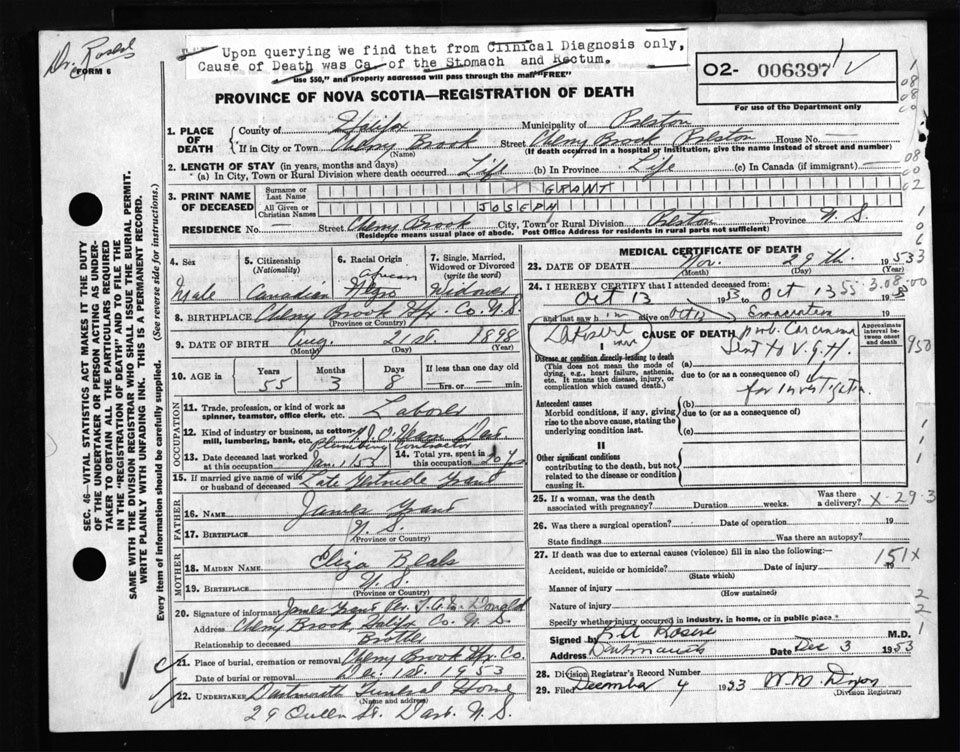 Dr. Rosere
Upon querying we find that from Clinical Diagnosis only,
Cause of Death was Ca. of the Stomach and Rectum.
FORM 6
use $50," and property addressed will pass through the mail "FREE"
02- 006397
For use of the Department only
PROVINCE OF NOVA SCOTIA—REGISTRATION OF DEATH
1. PLACE OF DEATH County of Halifax Municipality of Preston
If in City or Town Cherry Brook Street Cherry Brook Preston House No. —
(Name) (If death occurred in a hospital or institution, give the name instead of street and number)
2. LENGTH OF STAY (in years, months and days)
(a) In City, Town or Rural Division where death occurred Life (b) In Province Life (c) In Canada (if immigrant) —
3. PRINT NAME OF DECEASED Surname or Last Name GRANT
All Given or Christian Names JOSEPH
RESIDENCE No. — Street Cherry Brook City, Town or Rural Division Preston Province N.S.
(Residence means usual place of abode. Post Office Address for residents in rural parts not sufficient)
4. Sex Male
5. Citizenship (Nationality) Canadian
6. Racial Origin African Negro
7. Single, Married, Widowed or Divorced (write the word) Widower
8. BIRTHPLACE Cherry Brook Hfx. Co. N.S.
(Province or Country)
9. DATE OF BIRTH Aug. 21st 1898
(Month) (Day) (Year)
10. AGE in Years Months Days If less than one day old
55 3 8 — hrs. or — min.
OCCUPATION
11. Trade, profession, or kind of work as spinner, teamster, office clerk, etc. Laborer
12. Kind of industry or business, as cotton-mill, lumbering, bank, etc.
Plumbing Contractor
13. Date deceased last worked at this occupation Jan. 1/53
14. Total yrs. spent in this occupation 20 yrs.
15. If married give name of wife or husband of deceased Late Gertrude Grant
FATHER
16. Name James Grant
17. Birthplace N.S.
(Province or Country)
MOTHER
18. Maiden Name Eliza Beals
19. Birthplace N.S.
(Province or Country)
20. Signature of informant James Grant Per.
Address Cherry Brook, Halifax Co. N.S.
Relationship to deceased Brother
21. Place of burial, cremation or removal Cherry Brook Hfx. Co.
Date of burial or removal Dec. 1st. 1953
22. Undertaker Dartmouth Funeral Home
(Name and address)
29 Queen St. Dart. N.S.
MEDICAL CERTIFICATE OF DEATH
23. DATE OF DEATH Nov. 29th. 1953
(Month) (Day) (Year)
24. I HEREBY CERTIFY that I attended deceased from:
Oct 13 1953 to Oct 13 1953
and last saw him alive on Oct 13 19
CAUSE OF DEATH
Approximate interval between onset and death
Disease or condition directly leading to death
(This does not mean the mode of dying, e.g., heart failure, asthenia, etc. It means the disease, injury, or complication which caused death.)
(a) Sent to V.G.H.
due to (or as a consequence of)
for Investigation
Antecedent causes
Morbid conditions, if any, giving rise to the above cause, stating the underlying condition last.
(b)
due to (or as a consequence of)
(c)
II
Other significant conditions
contributing to the death, but not related to the disease or condition causing it.
25. If a woman, was the death associated with pregnancy? Duration weeks. Was there a delivery? X-29-3
26. Was there a surgical operation? Date of operation 19
State findings Was there an autopsy?
27. If death was due to external causes (violence) fill in also the following:—
Accident, suicide or homicide? Date of injury 19
151X
(State which)
Manner of injury
(How sustained)
Nature of injury
Specify whether injury occurred in industry, in home, or in public place
Signed by Rosere M.D.
Address Dartmouth Date Dec 3 1953
28. Division Registrar's Record Number
29. Filed December 4 1953 W. M. Dixon
(Division Registrar)
SEC. 46—VITAL STATISTICS ACT MAKES IT THE DUTY
OF THE UNDERTAKER OR PERSON ACTING AS UNDER-
TAKER TO OBTAIN ALL THE PARTICULARS REQUIRED
IN THE "REGISTRATION OF DEATH" AND TO FILE THE
SAME WITH THE DIVISION REGISTRAR WHO SHALL ISSUE THE BURIAL PERMIT.
WRITE PLAINLY WITH UNFADING INK. THIS IS A PERMANENT RECORD.
Every item of information should be carefully supplied. (See reverse side for instructions.)